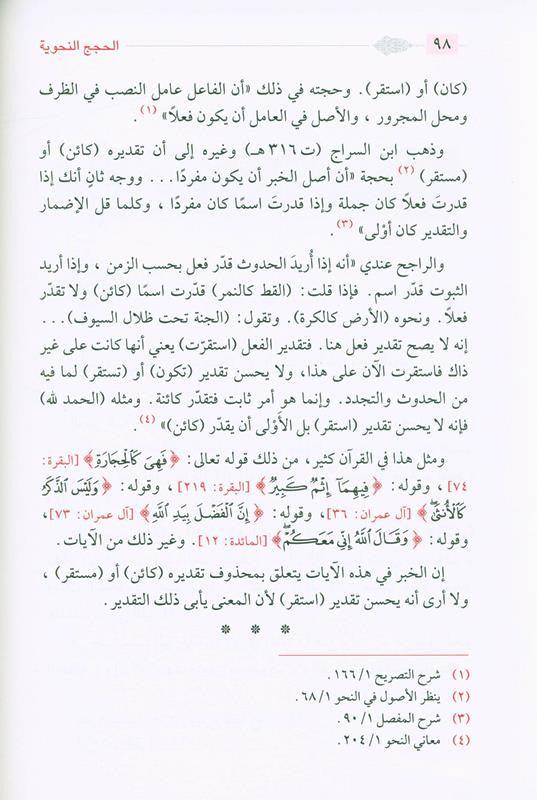 ٩٨
الحجج النحوية
(كان) أو (استقر). وحجته في ذلك «أن الفاعل عامل النصب في الظرف
ومحل المجرور ، والأصل في العامل أن يكون فعلاً» (١).
وذهب ابن السراج (ت ٣١٦ هـ) وغيره إلى أن تقديره (كائن) أو
(مستقر) (٢) بحجة «أن أصل الخبر أن يكون مفردًا . . . ووجه ثانٍ أنك إذا
قدرتَ فعلًا كان جملة وإذا قدرتَ اسمًا كان مفردًا ، وكلما قل الإضمار
والتقدير كان أوْلى» (٣).
والراجح عندي «أنه إذا أُريدَ الحدوث قدّر فعل بحسب الزمن ، وإذا أريد
الثبوت قدّر اسم. فإذا قلت: (القط كالنمر) قدّرت اسمًا (كائن) ولا تقدّر
فعلًا. ونحوه (الأرض كالكرة). وتقول: (الجنة تحت ظلال السيوف) . . .
إنه لا يصح تقدير فعل هنا. فتقدير الفعل (استقرّت) يعني أنها كانت على غير
ذاك فاستقرت الآن على هذا، ولا يحسن تقدير (تكون) أو (تستقر) لما فيه
من الحدوث والتجدد. وإنما هو أمر ثابت فتقدّر كائنة. ومثله (الحمد لله)
فإنه لا يحسن تقدير (استقر) بل الأَولى أن يقدّر (كائن)» (٤).
ومثل هذا في القرآن كثير، من ذلك قوله تعالى: ﴿فَهِيَ كَالْحِجَارَةِ﴾ [البقرة:
٧٤] ، وقوله: ﴿فِيهِمَا إِثْمٌ كَبِيرٌ﴾ [البقرة: ٢١٩] ، وقوله: ﴿وَلَيْسَ الذَّكَرُ
كَالْأُنثَىٰ﴾ [آل عمران: ٣٦]، وقوله: ﴿إِنَّ الْفَضْلَ بِيَدِ اللَّهِ﴾ [آل عمران: ٧٣]،
وقوله: ﴿وَقَالَ اللَّهُ إِنِّي مَعَكُمْ﴾ [المائدة: ١٢]. وغير ذلك من الآيات.
إن الخبر في هذه الآيات يتعلق بمحذوف تقديره (كائن) أو (مستقر) ،
ولا أرى أنه يحسن تقدير (استقر) لأن المعنى يأبى ذلك التقدير.
* * *
(١) شرح التصريح ١/ ١٦٦.
(٢) ينظر الأصول في النحو ١/ ٦٨.
(٣) شرح المفصل ١/ ٩٠.
(٤) معاني النحو ١/ ٢٠٤.